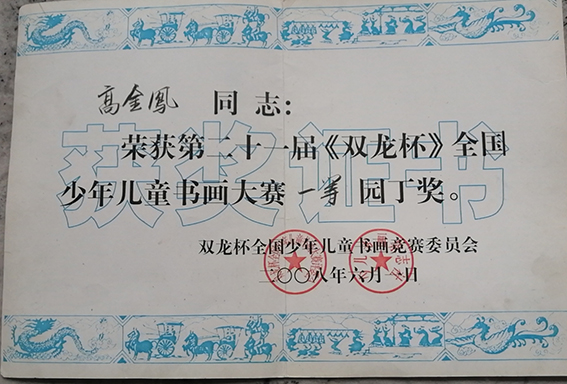 高金凤 同志：
获奖证书
荣获第二十一届《双龙杯》全国
少年儿童书画大赛 一等 园丁奖。
双龙杯全国少年儿童书画竞赛委员会
二〇〇八年六月一日